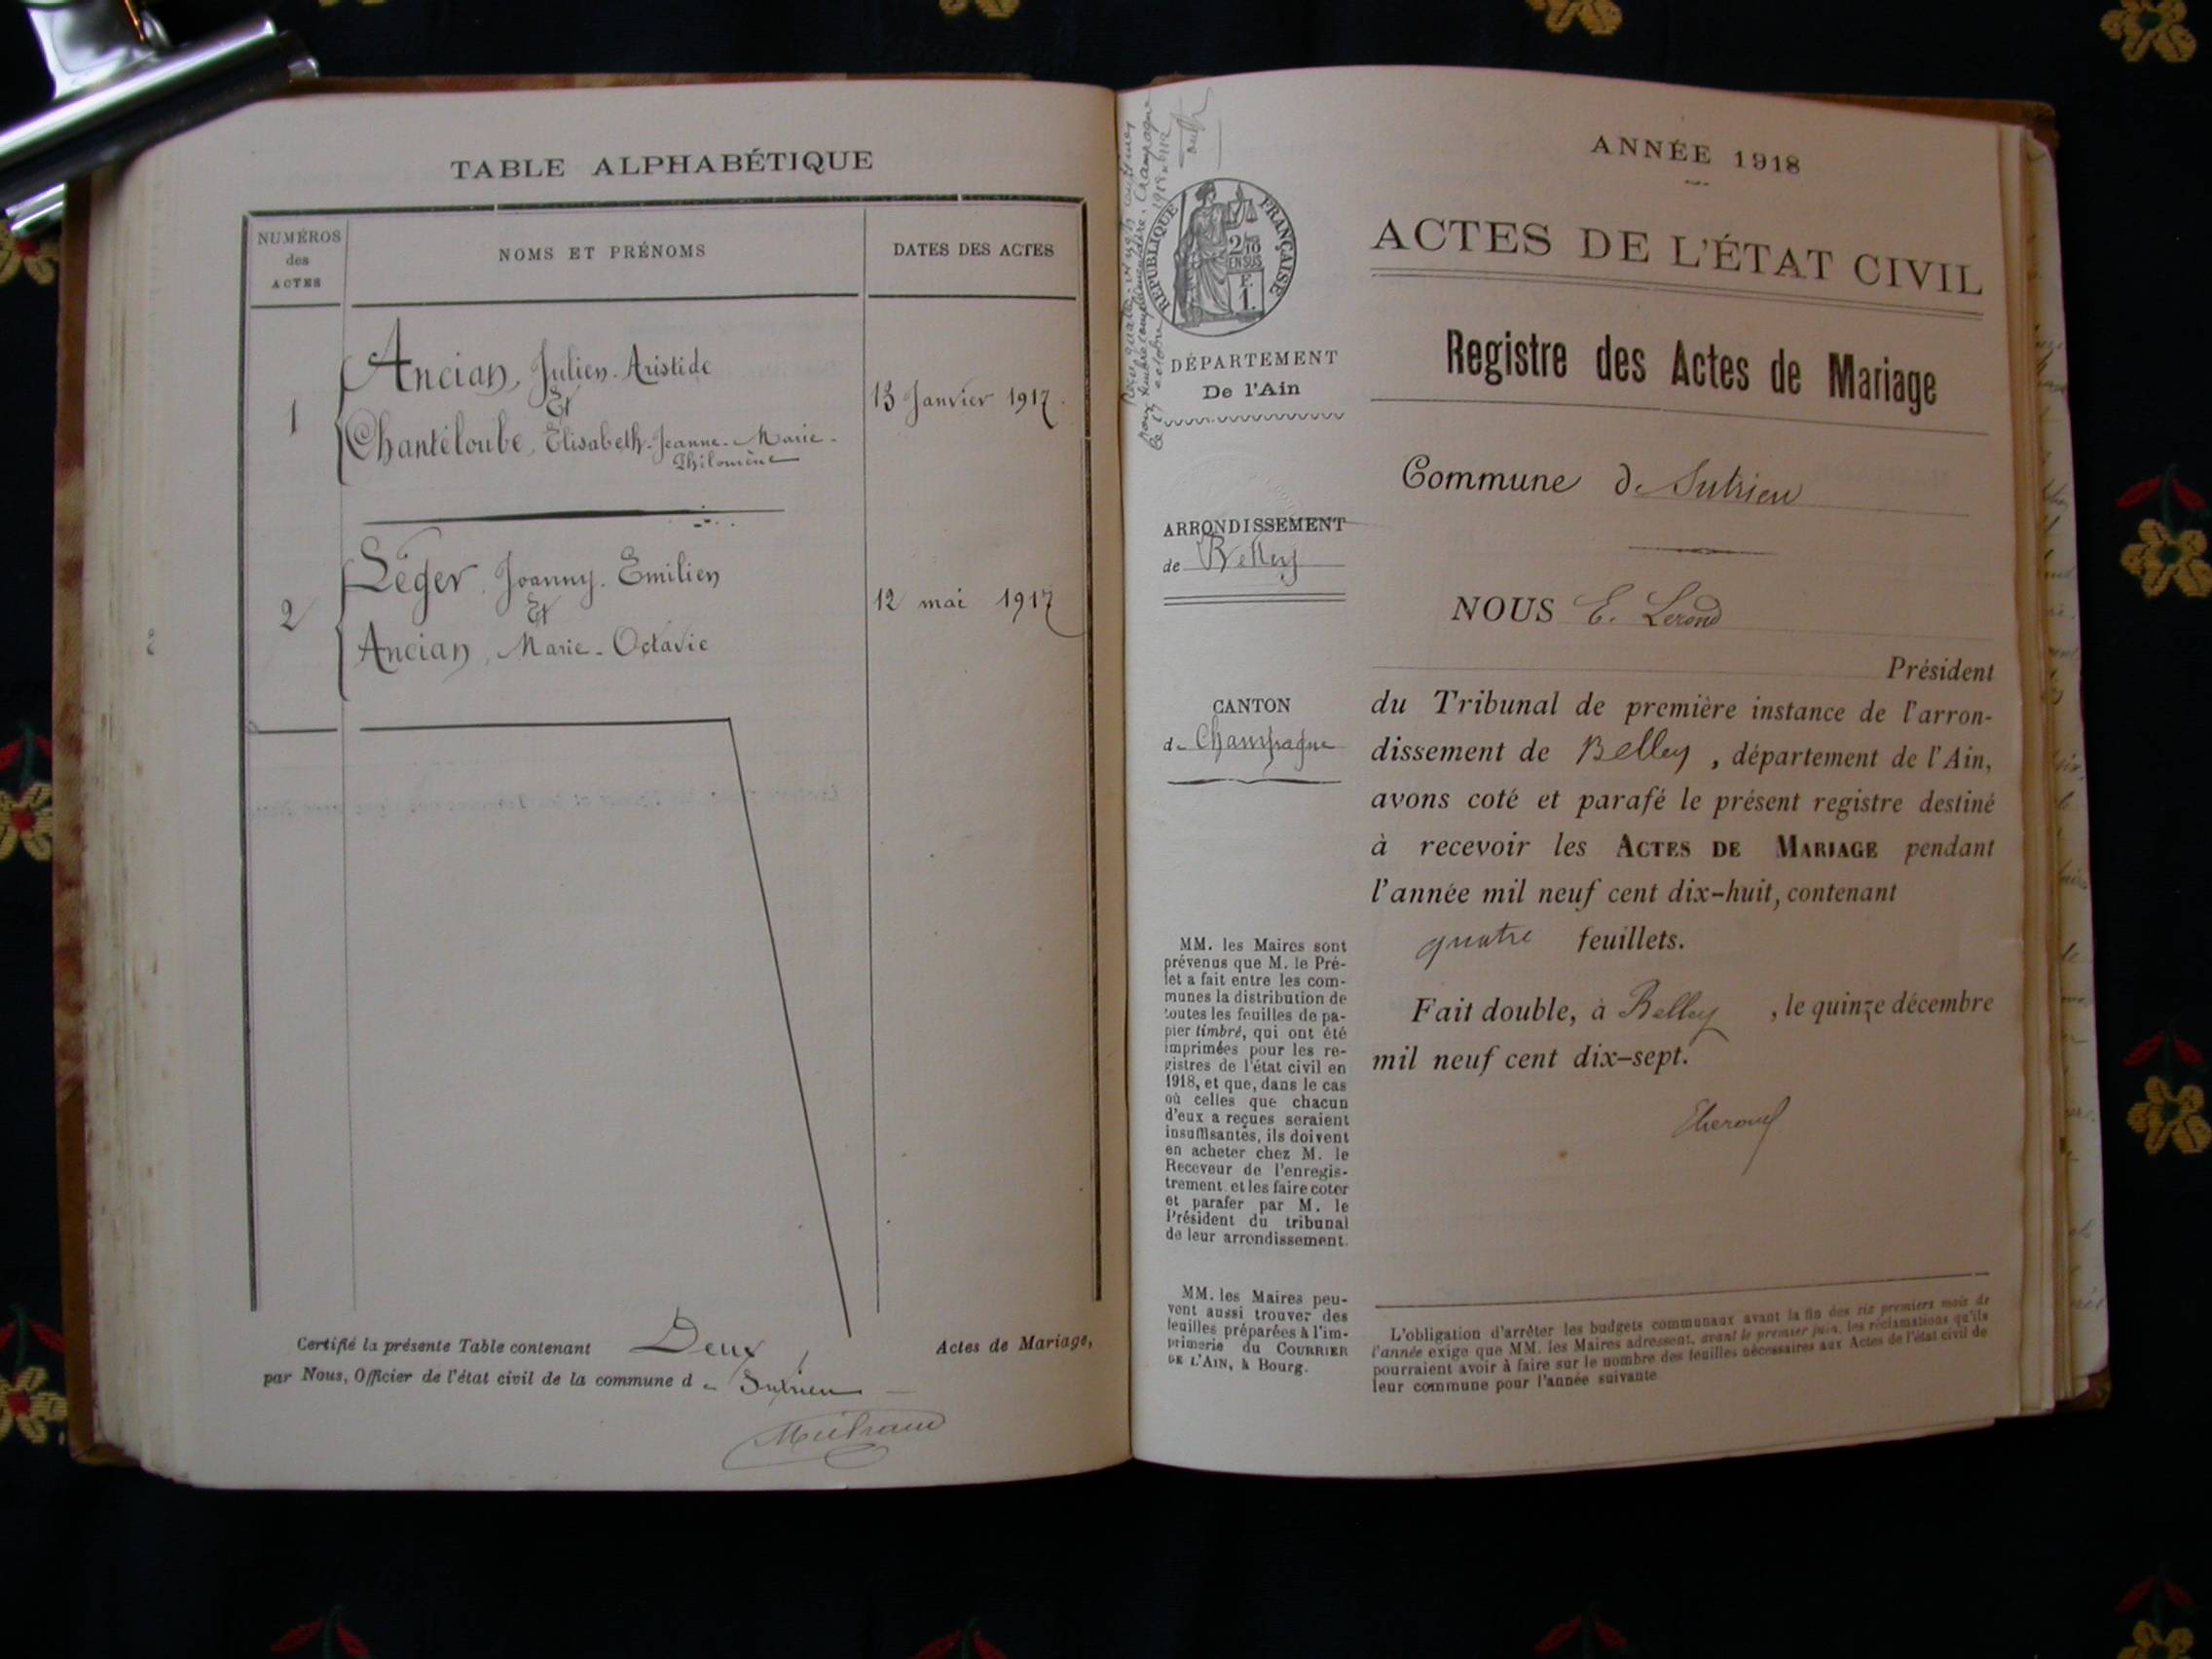 TABLE ALPHABÉTIQUE
NUMÉROS
des
ACTES
NOMS ET PRÉNOMS
DATES DES ACTES
1
Ancian, Julien-Aristide
Et
Chantéloube, Elisabeth-Jeanne-Marie-
Philomène
13 Janvier 1917.
2
Léger, Joanny-Emilien
Et
Ancian, Marie-Octavie
12 mai 1917
Certifié la présente Table contenant Deux Actes de Mariage,
par Nous, Officier de l'état civil de la commune de Sutrieu
RÉPUBLIQUE FRANÇAISE
2/10
EN SUS
F.
1.
DÉPARTEMENT
De l'Ain
ARRONDISSEMENT
de Belley
CANTON
de Champagne
MM. les Maires sont
prévenus que M. le Pré-
fet a fait entre les com-
munes la distribution de
toutes les feuilles de pa-
pier timbré, qui ont été
imprimées pour les re-
gistres de l'état civil en
1918, et que, dans le cas
où celles que chacun
d'eux a reçues seraient
insuffisantes, ils doivent
en acheter chez M. le
Receveur de l'enregis-
trement. et les faire coter
et parafer par M. le
Président du tribunal
de leur arrondissement.
MM. les Maires peu-
vent aussi trouver des
feuilles préparées à l'im-
primerie du COURRIER
DE L'AIN, à Bourg.
ANNÉE 1918
ACTES DE L'ÉTAT CIVIL
Registre des Actes de Mariage
Commune de Sutrieu
NOUS E. Lerond
Président
du Tribunal de première instance de l'arron-
dissement de Belley, département de l'Ain,
avons coté et parafé le présent registre destiné
à recevoir les ACTES DE MARIAGE pendant
l'année mil neuf cent dix-huit, contenant
quatre feuillets.
Fait double, à Belley, le quinze décembre
mil neuf cent dix-sept.
L'obligation d'arrêter les budgets communaux avant la fin des six premiers mois de
l'année exige que MM. les Maires adressent, avant le premier juin, les réclamations qu'ils
pourraient avoir à faire sur le nombre des feuilles nécessaires aux Actes de l'état civil de
leur commune pour l'année suivante